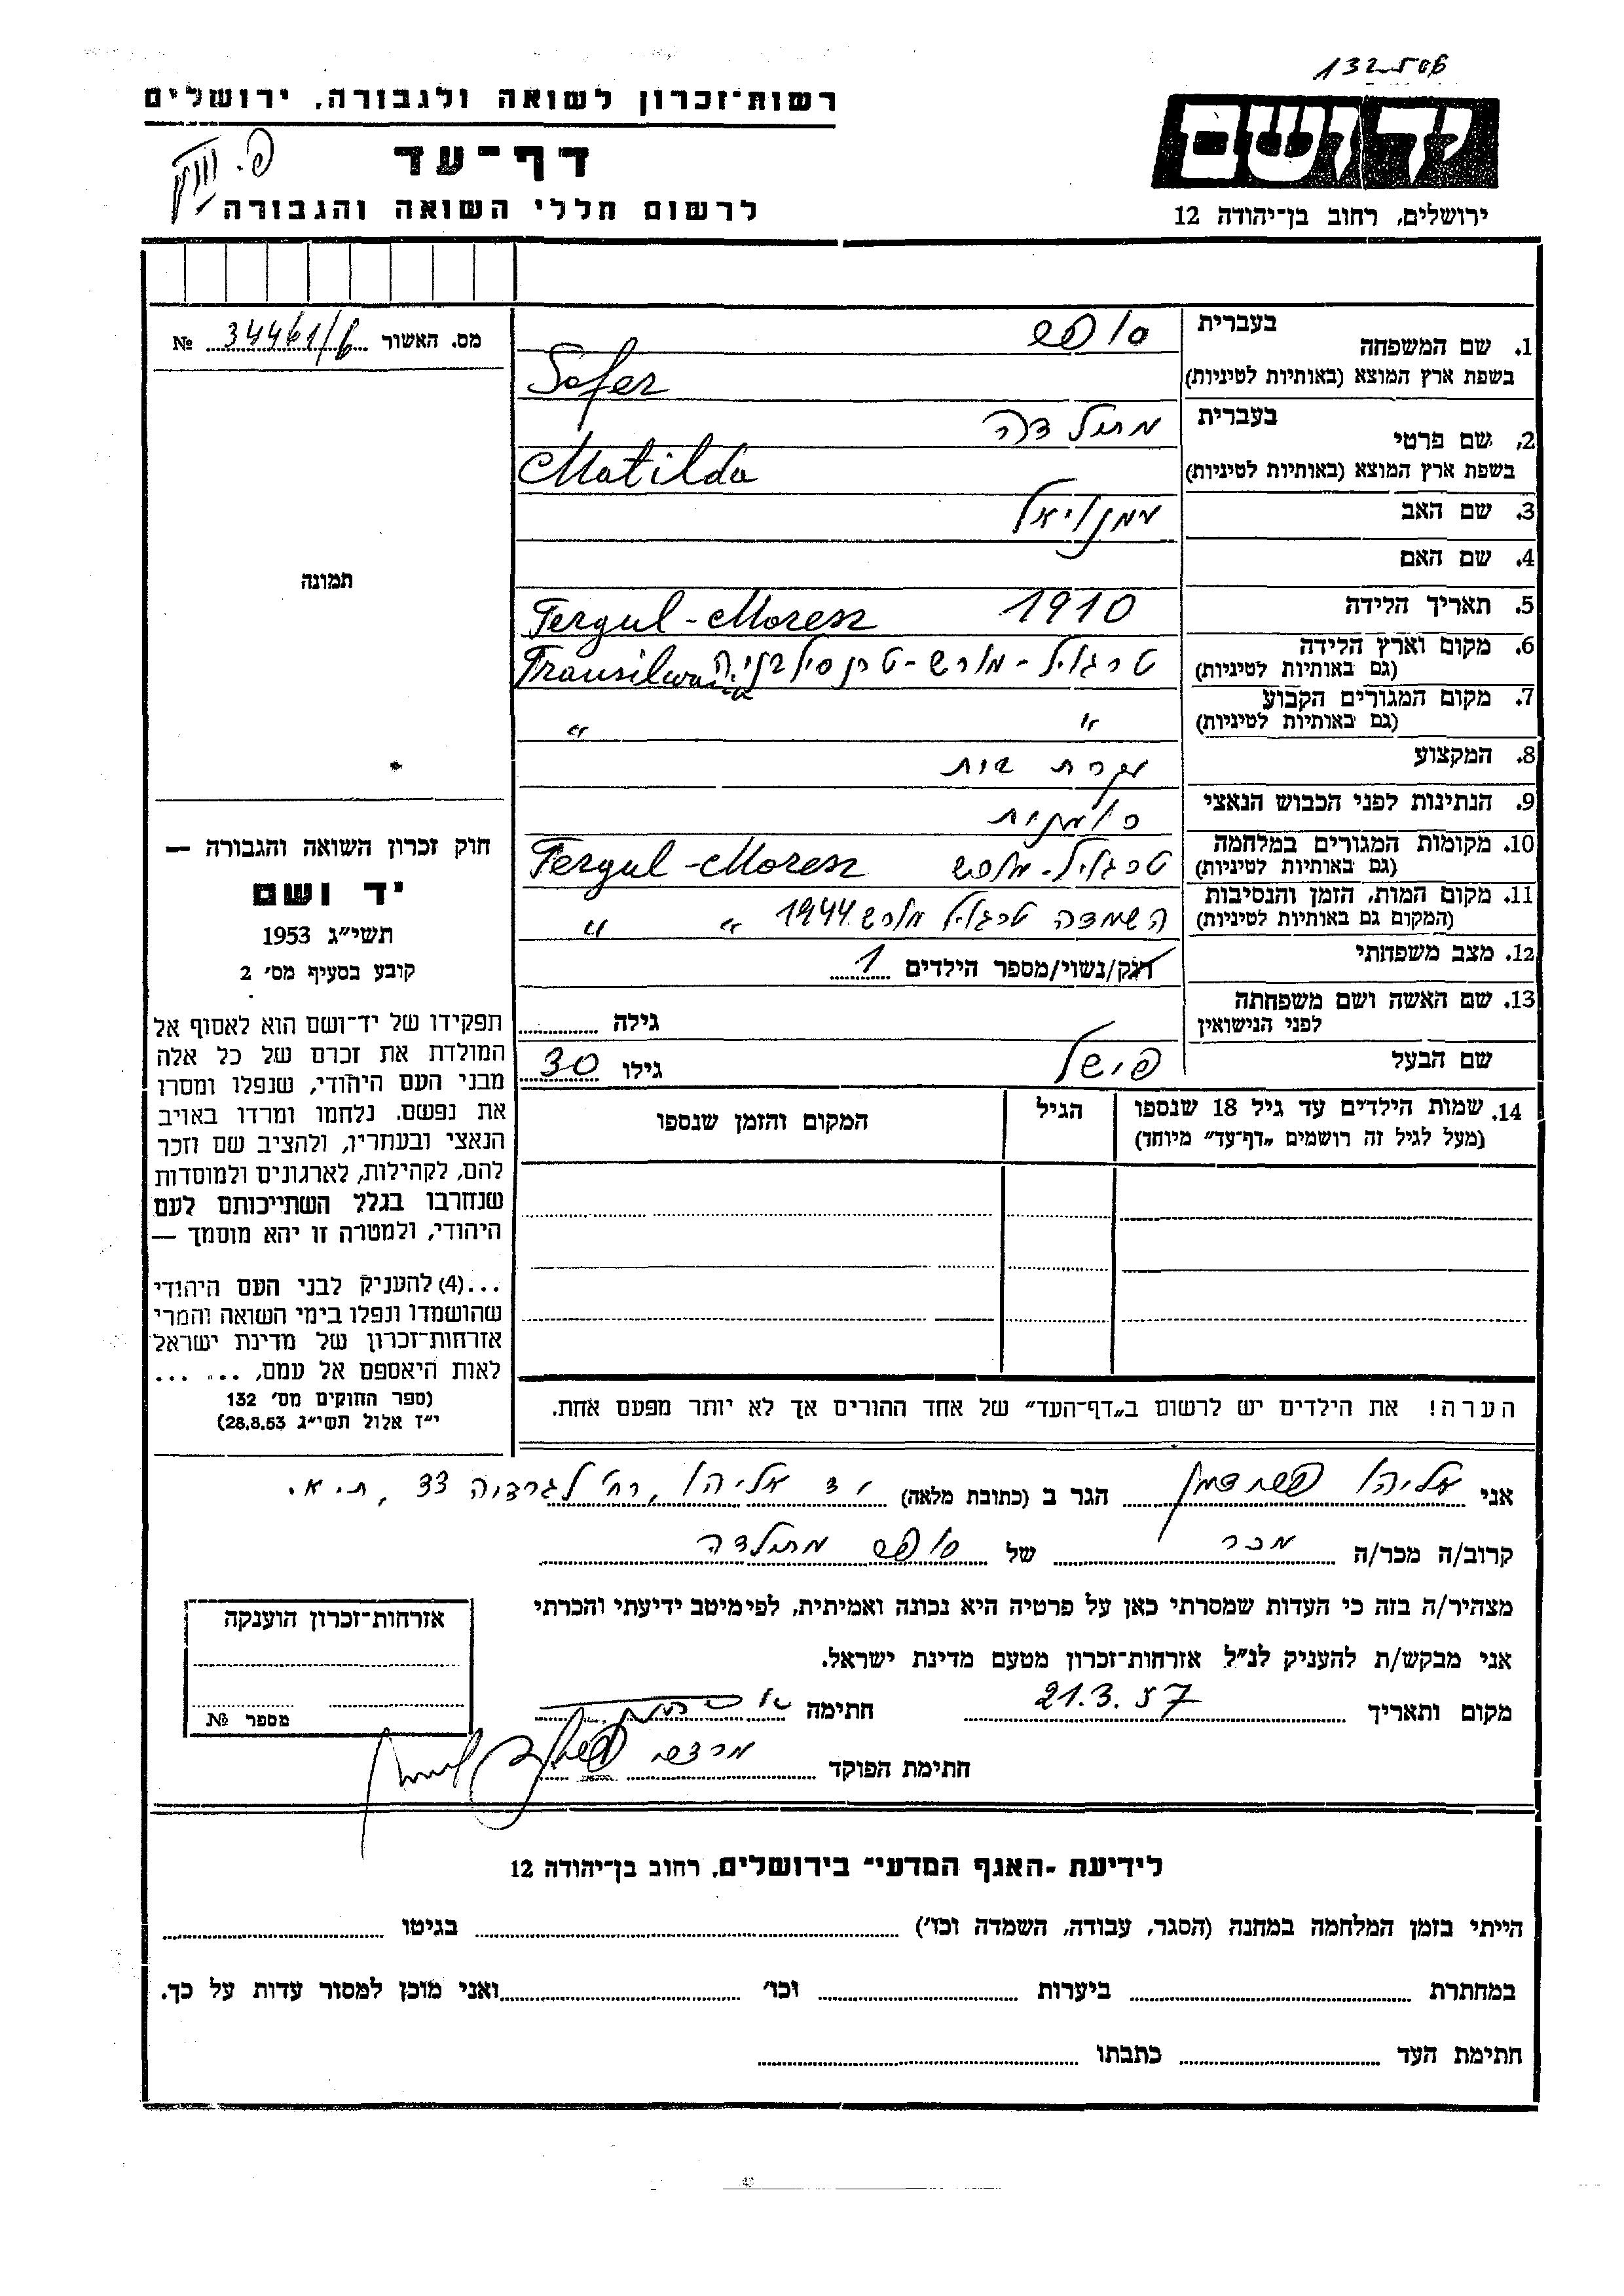 132506
רשות־זכרון לשואה ולגבורה, ירושלים
יד ושם
דף־עד
לרשום חללי השואה והגבורה
ירושלים, רחוב בן־יהודה 12
מס. האשור 34461/6 №
1. שם המשפחה
בעברית סופר
בשפת ארץ המוצא (באותיות לטיניות) Sofer
2. שם פרטי
בעברית מתילדה
בשפת ארץ המוצא (באותיות לטיניות) Matilda
3. שם האב
4. שם האם
5. תאריך הלידה 1910
6. מקום וארץ הלידה Tergul-Moresz
(גם באותיות לטיניות) טרגול-מורש-טרנסילבניה Transilvania
7. מקום המגורים הקבוע
(גם באותיות לטיניות) " "
8. המקצוע עקרת בית
9. הנתינות לפני הכבוש הנאצי רומנית
10. מקומות המגורים במלחמה
(גם באותיות לטיניות) טרגול-מורש Tergul-Moresz
11. מקום המות, הזמן והנסיבות
(המקום גם באותיות לטיניות) השמדה טרגול מורש 1944 " "
12. מצב משפחתי רווק/נשוי/מספר הילדים 1
13. שם האשה ושם משפחתה
לפני הנישואין גילה
שם הבעל פישל גילו 30
14. שמות הילדים עד גיל 18 שנספו
(מעל לגיל זה רושמים „דף־עד" מיוחד)
הגיל
המקום והזמן שנספו
הערה! את הילדים יש לרשום ב„דף־העד" של אחד ההורים אך לא יותר מפעם אחת.
תמונה
חוק זכרון השואה והגבורה —
יד ושם
תשי"ג 1953
קובע בסעיף מס' 2
תפקידו של יד־ושם הוא לאסוף אל
המולדת את זכרם של כל אלה
מבני העם היהודי, שנפלו ומסרו
את נפשם, נלחמו ומרדו באויב
הנאצי ובעוזריו, ולהציב שם וזכר
להם, לקהילות, לארגונים ולמוסדות
שנחרבו בגלל השתייכותם לעם
היהודי, ולמטרה זו יהא מוסמך —
...(4) להעניק לבני העם היהודי
שהושמדו ונפלו בימי השואה והמרי
אזרחות־זכרון של מדינת ישראל
לאות היאספם אל עמם, ... ...
(ספר החוקים מס' 132
י"ז אלול תשי"ג 28.8.53)
אני אליהו הגר ב (כתובת מלאה) יד אליהו, רח' לגרדיה 33, ת.א.
קרוב/ה מכר/ה מכר של סופר מתילדה
מצהיר/ה בזה כי העדות שמסרתי כאן על פרטיה היא נכונה ואמיתית, לפי מיטב ידיעתי והכרתי
אני מבקש/ת להעניק לנ"ל אזרחות־זכרון מטעם מדינת ישראל.
מקום ותאריך 21.3.57 חתימה
חתימת הפוקד
אזרחות־זכרון הוענקה
מספר №
לידיעת „האגף המדעי" בירושלים, רחוב בן־יהודה 12
הייתי בזמן המלחמה במחנה (הסגר, עבודה, השמדה וכו') בגיטו
במחתרת ביערות וכו' ואני מוכן למסור עדות על כך.
חתימת העד כתבתו